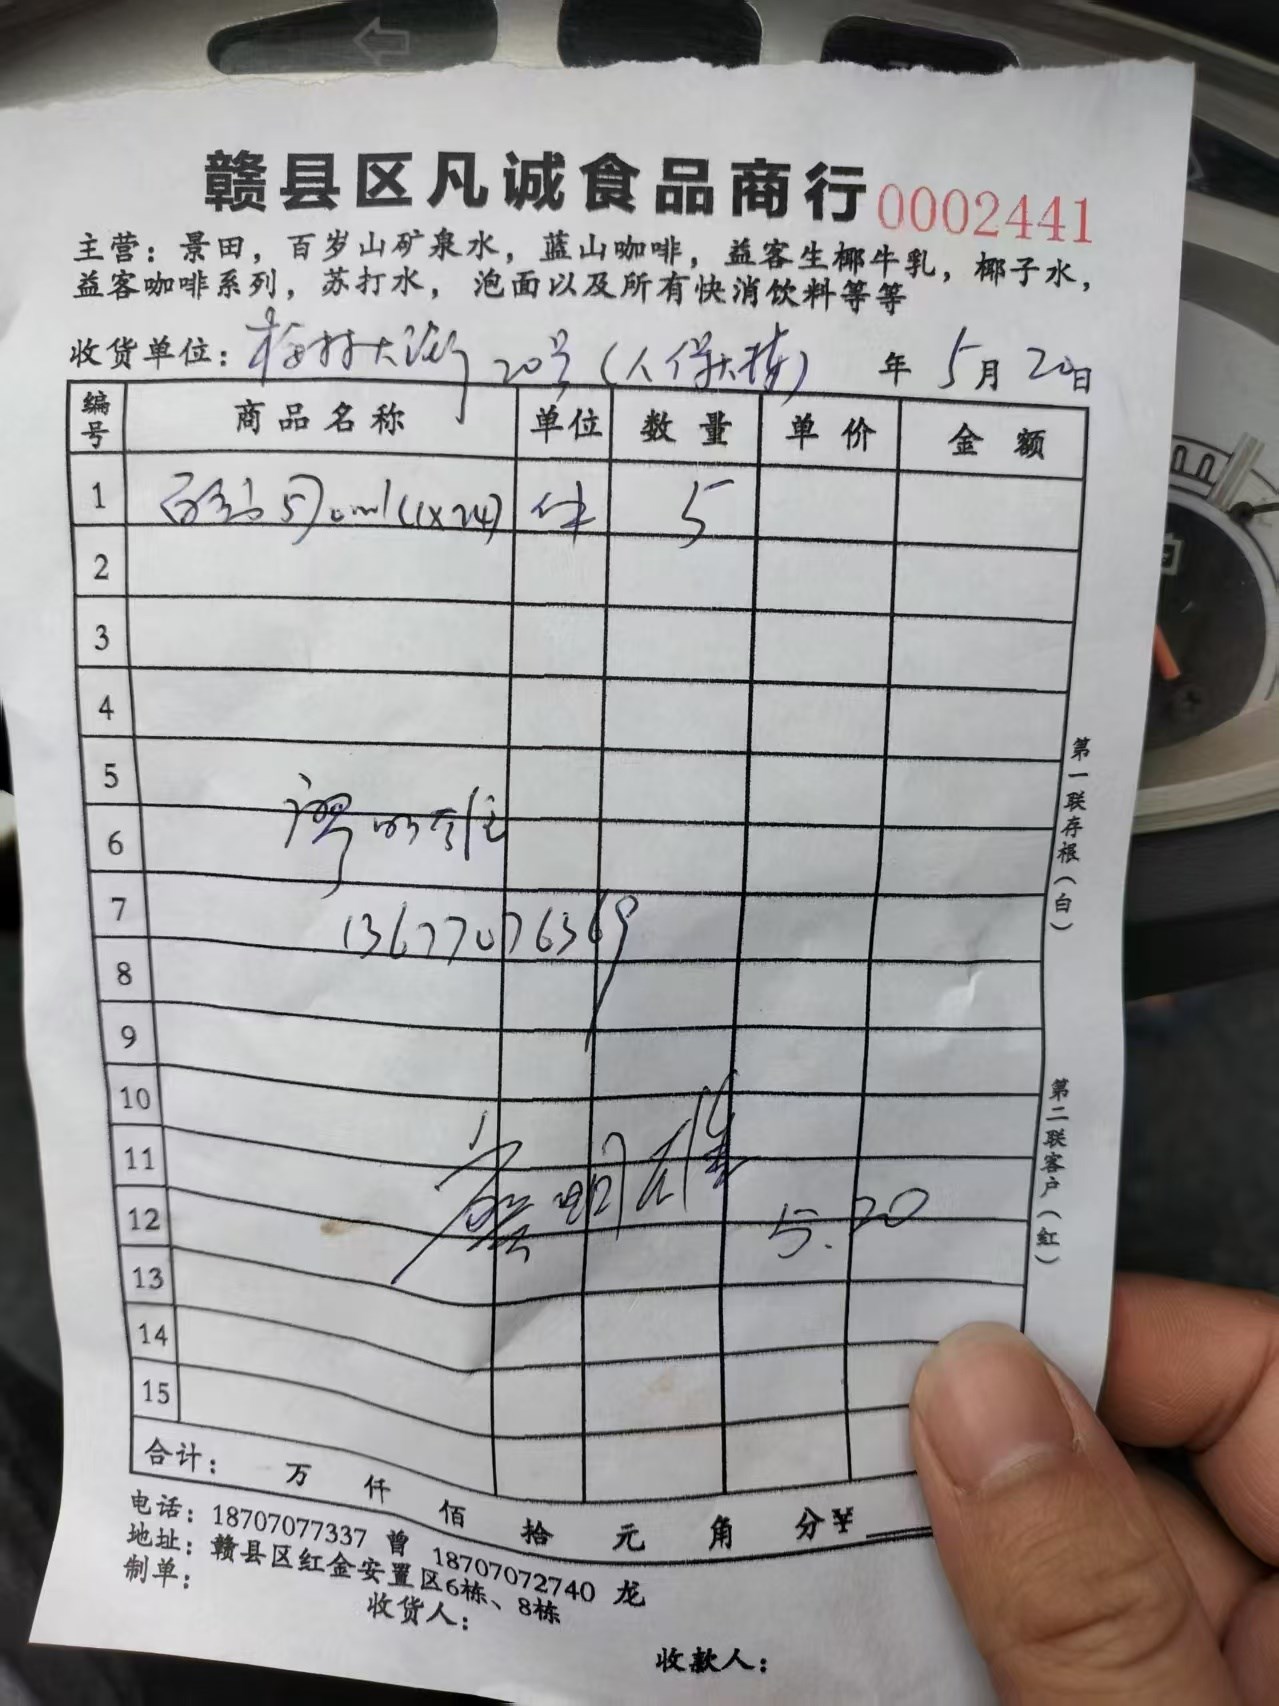 赣县区凡诚食品商行 0002441
主营：景田，百岁山矿泉水，蓝山咖啡，益客生椰牛乳，椰子水，
益客咖啡系列，苏打水，泡面以及所有快消饮料等等
收货单位：梅林大街20号（人保大楼） 年 5月20日
编号 商品名称 单位 数量 单价 金额
1 百岁山570ml(1X24) 件 5
2
3
4
5
6 明雄
7 13677076369
8
9
10
11
12 明雄 5.20
13
14
15
合计： 万 仟 佰 拾 元 角 分¥
电话：18707077337 曾 18707072740 龙
地址：赣县区红金安置区6栋、8栋
制单： 收货人： 收款人：
第一联存根（白）
第二联客户（红）